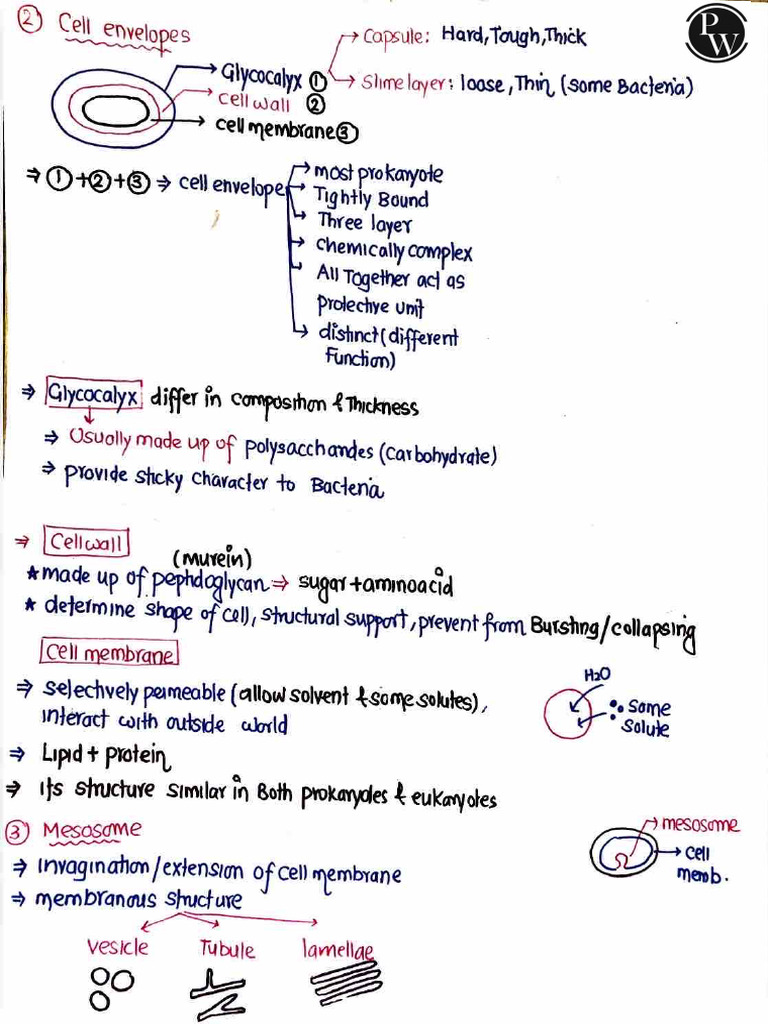 ② Cell envelopes
PW
Capsule: Hard, Tough, Thick
Glycocalyx ①
Slime layer: loose, Thin (some Bacteria)
cell wall ②
cell membrane ③
⇒ ①+②+③ ⇒ cell envelope
most prokaryote
Tightly Bound
Three layer
chemically complex
All Together act as
protective unit
distinct (different
function)
⇒ Glycocalyx differ in composition & Thickness
⇒ Usually made up of polysaccharides (carbohydrate)
⇒ provide sticky character to Bacteria
⇒ Cell wall
(murein)
* made up of peptidoglycan ⇒ sugar + aminoacid
* determine shape of cell, structural support, prevent from Bursting/collapsing
Cell membrane
⇒ selectively permeable (allow solvent & some solutes),
interact with outside world
H2O
some
solute
⇒ Lipid + protein
⇒ Its structure similar in Both prokaryotes & eukaryotes
③ Mesosome
mesosome
cell
memb.
⇒ invagination/extension of cell membrane
⇒ membranous structure
vesicle Tubule lamellae